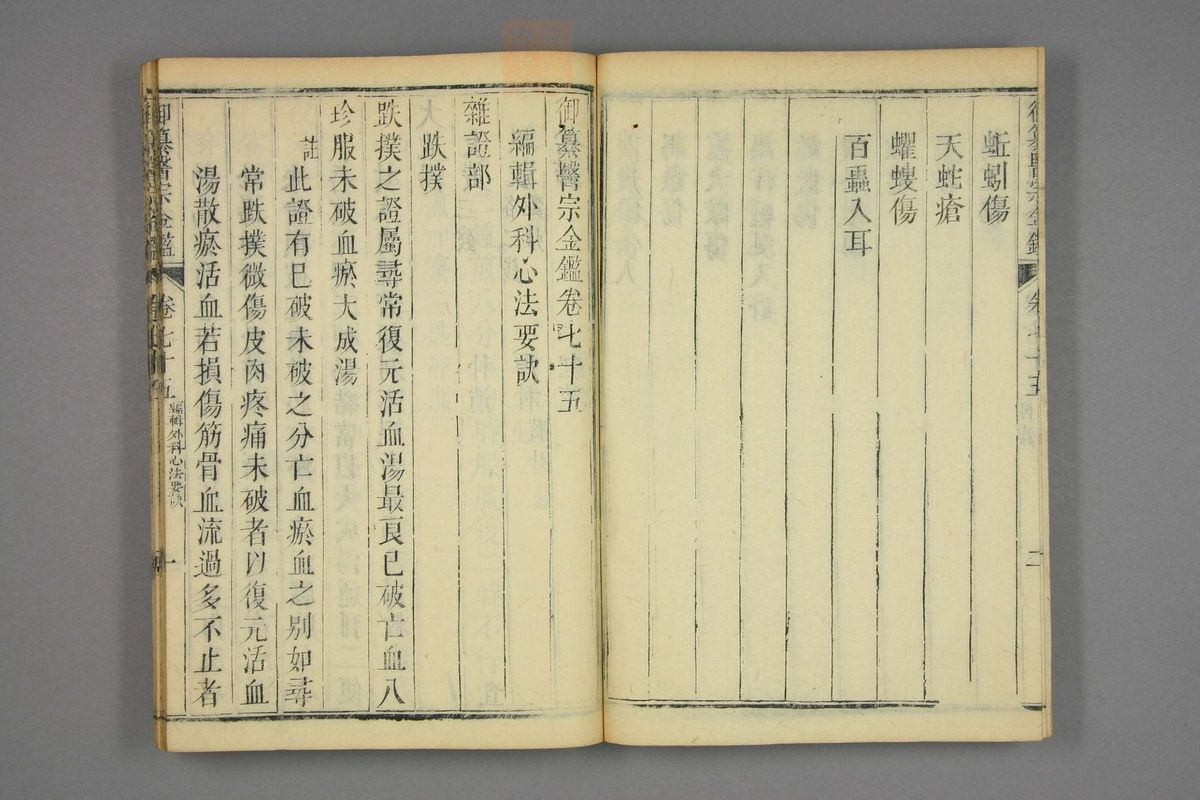 御纂醫宗金鑑 卷七十五 二
蚯蚓傷
天蛇瘡
蠼螋傷
百蟲入耳
御纂醫宗金鑑卷七十五
編輯外科心法要訣
雜證部
跌撲
跌撲之證屬尋常復元活血湯最良已破亡血八
珍服未破血瘀大成湯
註此證有已破未破之分亡血瘀血之别如尋
常跌撲微傷皮肉疼痛未破者以復元活血
湯散瘀活血若損傷筋骨血流過多不止者
御纂醫宗金鑑 卷七十五 編輯外科心法要訣 一